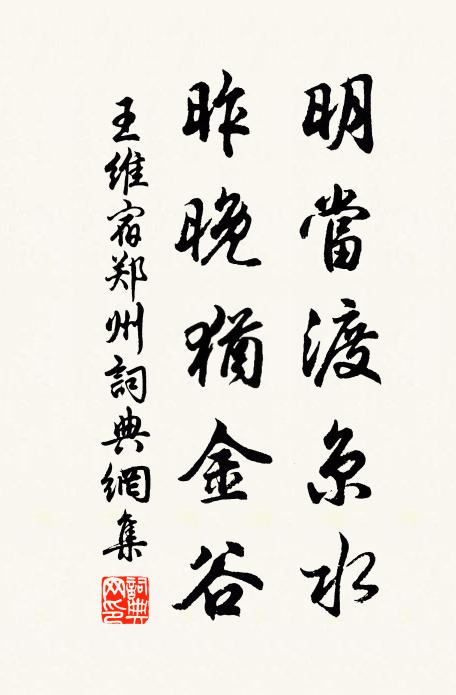 明當渡京水
昨晚猶金谷
王維宿郑州詞典網集
詞典網印